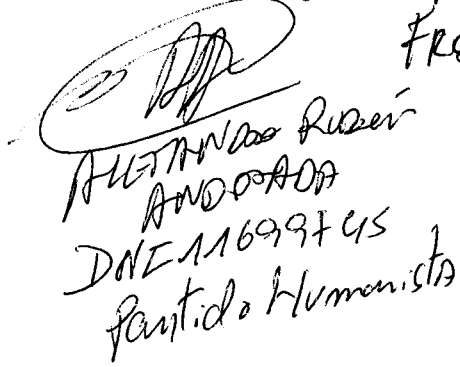 FRE
ALEJANDRO RUBEN
ANDRADA
DNI 11699745
Partido Humanista